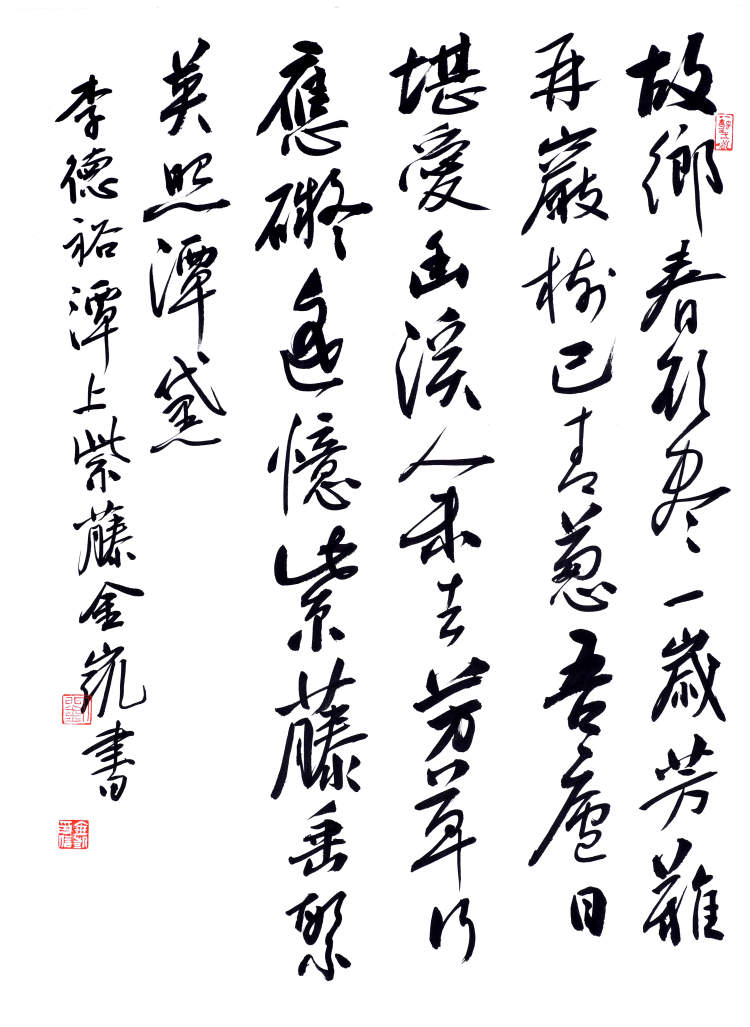 故鄉春欲盡一歲芳難
再巖樹已青蔥吾廬日
堪愛幽溪人未去芳草行
應礙遙憶紫藤垂繁
英照潭黛
李德裕潭上紫藤金書